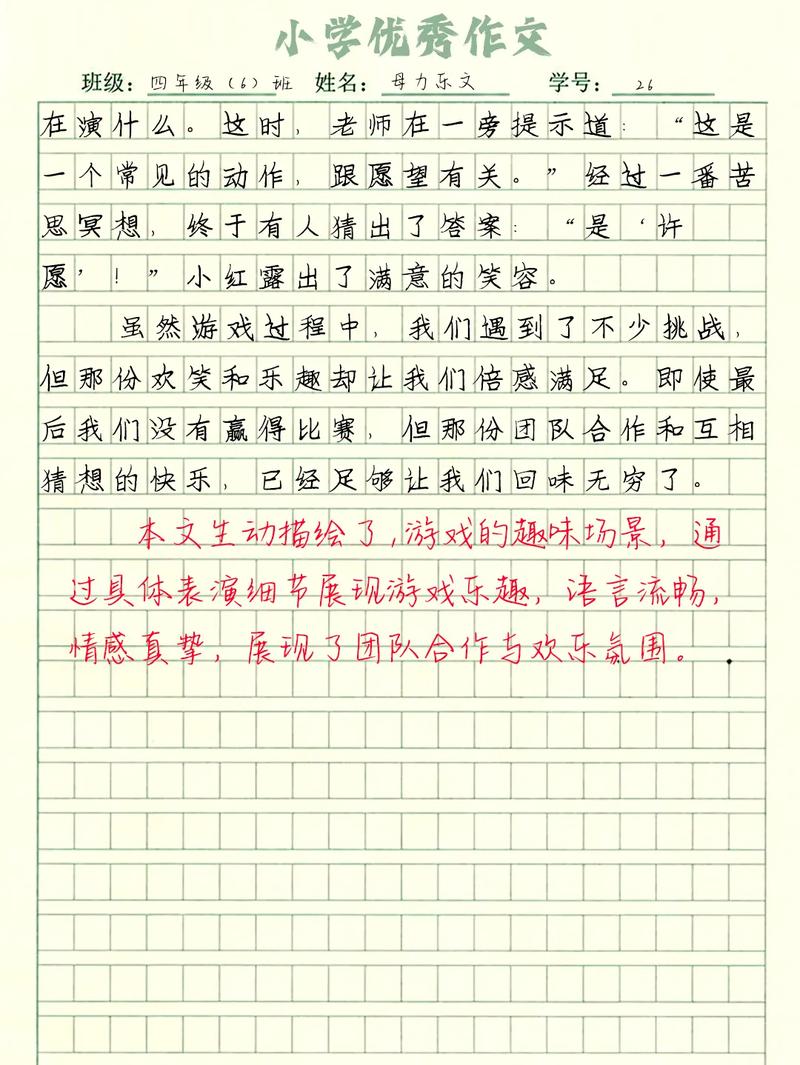 小学优秀作文
班级：四年级（6）班 姓名：母力乐文 学号：26
在演什么。这时，老师在一旁提示道：“这是
一个常见的动作，跟愿望有关。”经过一番苦
思冥想，终于有人猜出了答案：“是‘许
愿’！”小红露出了满意的笑容。
虽然游戏过程中，我们遇到了不少挑战，
但那份欢笑和乐趣却让我们倍感满足。即使最
后我们没有赢得比赛，但那份团队合作和互相
猜想的快乐，已经足够让我们回味无穷了。
本文生动描绘了，游戏的趣味场景，通
过具体表演细节展现游戏乐趣，语言流畅，
情感真挚，展现了团队合作与欢乐氛围。